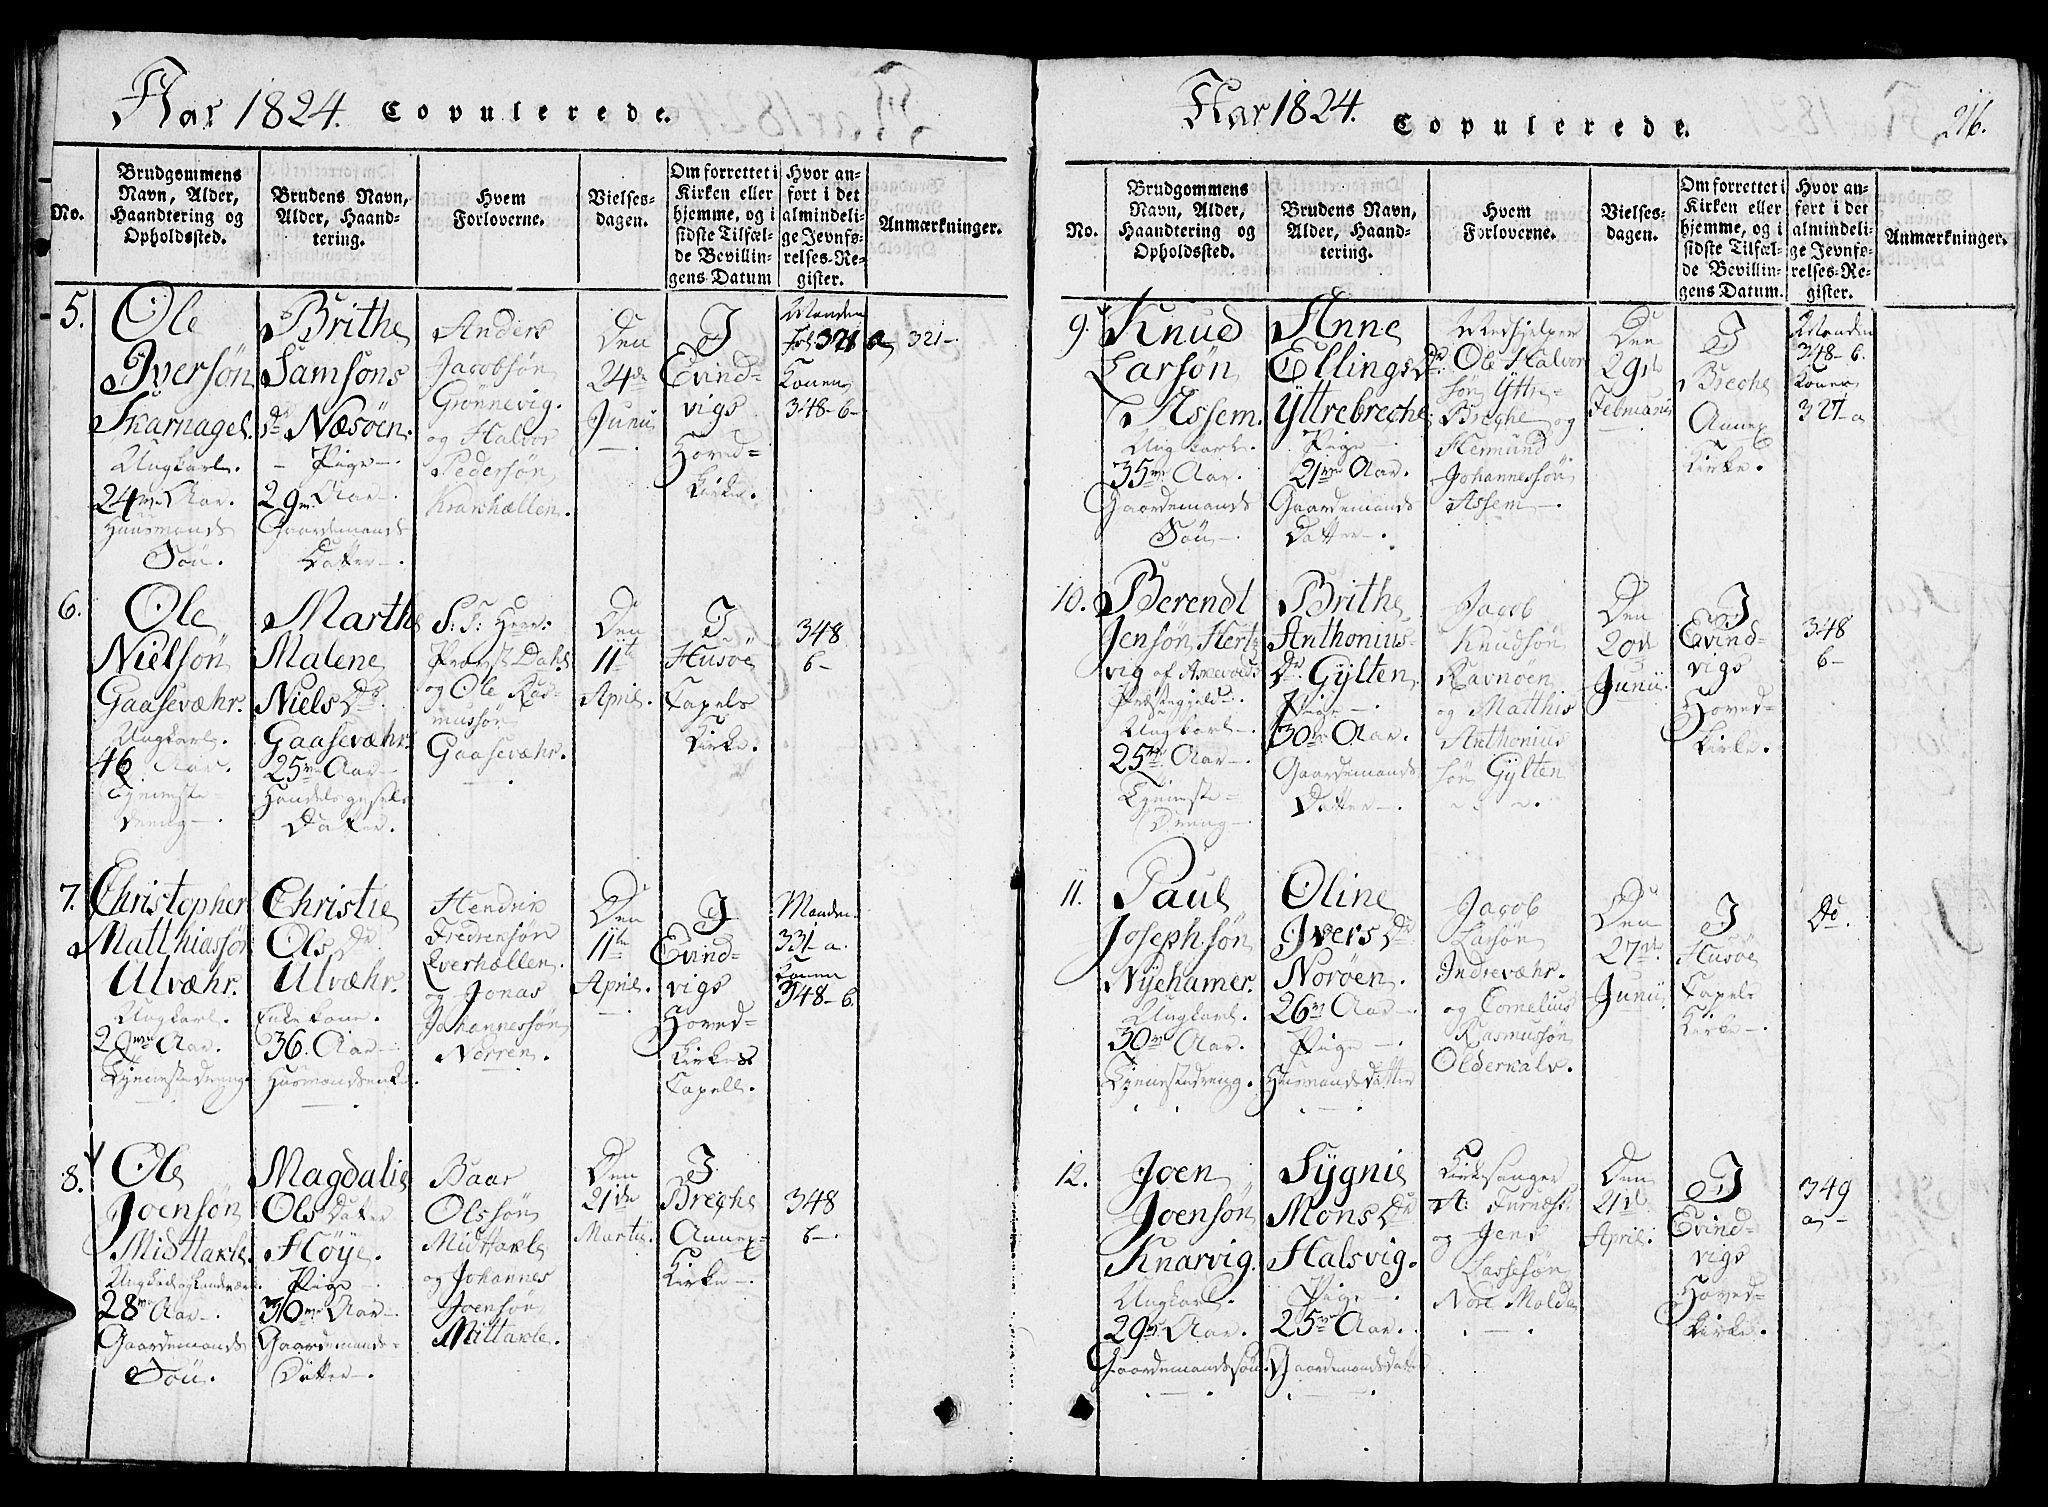 Aar 1824. Copulerede.
No.
Brudgommens
Navn, Alder,
Haandtering og
Opholdssted.
Brudens Navn,
Alder, Haand-
tering.
Hvem
Forloverne.
Vielses-
dagen.
Om forrettet i
Kirken eller
hjemme, og i
sidste Tilfæl-
de Bevillin-
gens Datum
Hvor an-
ført i det
almindeli-
ge Jevnfø-
relses-Re-
gister.
Anmærkninger.
5.
Ole
Iversøn
Skarnagel.
Ungkarl.
24 Aar.
Huusmands
Søn.
Brithe
Samsons
Dr Næsøen.
Pige
29 Aar
Gaardemands
Datter.
Anders
Jacobsøn
Grønnevig.
og Halvor
Pedersøn
Kraakhællen.
Den
24de
Junii
I
Evind-
vigs
Hoved-
kirke.
Manden
Fol 321 a
Konen
348-b-
321-
6.
Ole
Nielsøn
Gaasevæhr.
Ungkarl.
46 Aar.
Tjeneste-
dreng
Marthe
Malene
Niels Dr
Gaasevæhr.
25 Aar
Datter.
S: T: Herr:
Provst Dahl
og Ole Ras-
mussøn
Gaasevæhr.
Den
11te
April.
I
Husøe
Capels
Kirke.
348
b-
7.
Christopher
Matthiassøn
Ulvæhr.
Ungkarl.
Aar.
Tjenestedreng.
Christie
Ols Dr
Ulvæhr.
Enkekone.
36. Aar
Husmandsenke
Hendrik
Everhællen.
og Jonas
Johannessøn
Nerren.
Den
11te
April.
I
Evind-
vigs
Hoved-
Kirkes
Capell.
Manden
331-a.
Konen
348-b.
8.
Ole
Joensøn
Midttakle.
28 Aar
Gaardemands
Søn.
Magdalie
Ols Datter
Høye.
Pige
30 Aar
Gaardemands-
Datter.
Baar
Olssøn
Midttakle
og Johannes
Joensøn
Mittakle.
Den
21de
Martii.
I
Breche
Annex-
Kirke
348
b-
Aar 1824. Copulerede.
216.
No.
Brudgommens
Navn, Alder,
Haandtering og
Opholdssted.
Brudens Navn,
Alder, Haand-
tering.
Hvem
Forloverne.
Vielses-
dagen.
Om forrettet i
Kirken eller
hjemme, og i
sidste Tilfæl-
de Bevillin-
gens Datum.
Hvor an-
ført i det
almindeli-
ge Jevnfø-
relses-Re-
gister.
Anmærkninger.
9.
Knud
Larsøn
Assem.
Ungkarl.
35 Aar.
Gaardemands
Søn.
Anne
Ellings Dr
Yttrebreche.
Pige
21 Aar.
Gaardemands
Datter
Medhjelper
Ole Halvor
søn Yttre-
Breche og
Hermund
Johannessøn
Assem
Den
29de
Februarii
I
Breche
Annex
Kirke.
Manden
348-b.
Konen
327-a
10.
Berendt
Jensøn Hert
vig af Askevolds
Præstegjeld
Ungkarl
25 Aar
Tjeneste-
Dreng
Brithe
Anthonius-
Dr Gylten
Pige
30 Aar.
Gaardemands
Datter
Jacob
Knudsøn
Ravnøen
og Matthis
Anthonius
søn Gylten
Den
20de
Junii.
I
Evind-
vigs
Hoved-
Kirke.
348
b-
11.
Paul
Joseph.søn
Nyehamer.
Ungkarl.
30 Aar.
Tjenestedreng.
Oline
Ivers Dr
Norøen.
26 Aar
Pige
Husmandsdatter
Jacob
Larsøn
Indrevæhr.
og Cornelius
Rasmussøn
Oldervalv.
Den
27de
Junii
I
Husøe
Capels
Kirke
Do.
12.
Joen
Joensøn
Knarvig.
Ungkarl.
29 Aar.
Gaardemandssøn.
Sygnie
Mons Dr
Halsvig.
Pige
25 Aar.
Gaardemandsdatter
Kirkesanger
A: Furnæss
og Jens
Lassesøn
Nore Molde
Den
21de
April.
I
Evind-
vigs
Hoved-
kirke.
349
a-